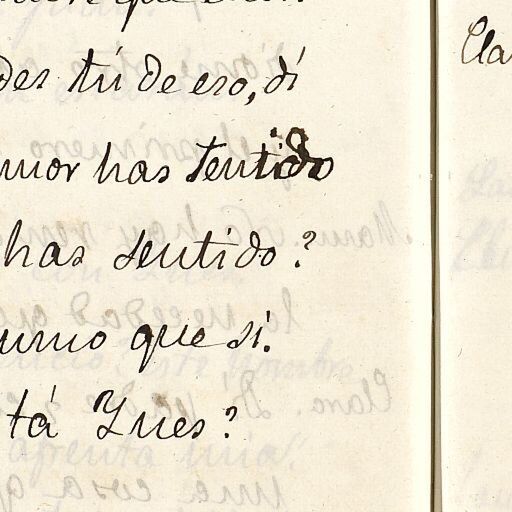 que
des tú de eso, di
mor has tentido
has sentido?
umo que sí.
tá Ynes?
Cla